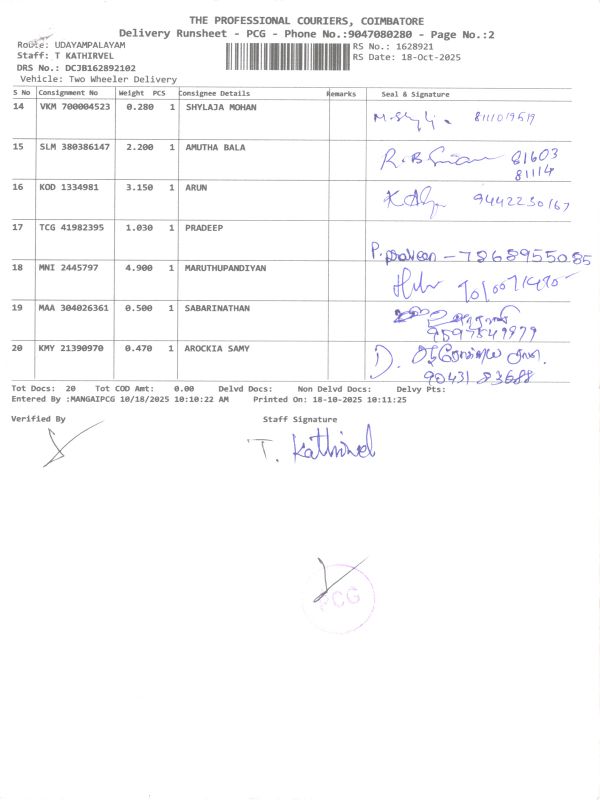 THE PROFESSIONAL COURIERS, COIMBATORE
Delivery Runsheet - PCG - Phone No.:9047080280 - Page No.:2
Route: UDAYAMPALAYAM
Staff: T KATHIRVEL
DRS No.: DCJB162892102
Vehicle: Two Wheeler Delivery
RS No.: 1628921
RS Date: 18-Oct-2025
S No Consignment No Weight PCS Consignee Details Remarks Seal & Signature
14 VKM 700004523 0.280 1 SHYLAJA MOHAN
15 SLM 380386147 2.200 1 AMUTHA BALA 81603
81114
16 KOD 1334981 3.150 1 ARUN 9442230167
17 TCG 41982395 1.030 1 PRADEEP P. praveen - 7868955085
18 MNI 2445797 4.900 1 MARUTHUPANDIYAN
19 MAA 304026361 0.500 1 SABARINATHAN
9597549979
20 KMY 21390970 0.470 1 AROCKIA SAMY D.
90431 83688
Tot Docs: 20 Tot COD Amt: 0.00 Delvd Docs: Non Delvd Docs: Delvy Pts:
Entered By :MANGAIPCG 10/18/2025 10:10:22 AM Printed On: 18-10-2025 10:11:25
Verified By Staff Signature
T. Kathirvel
PCG